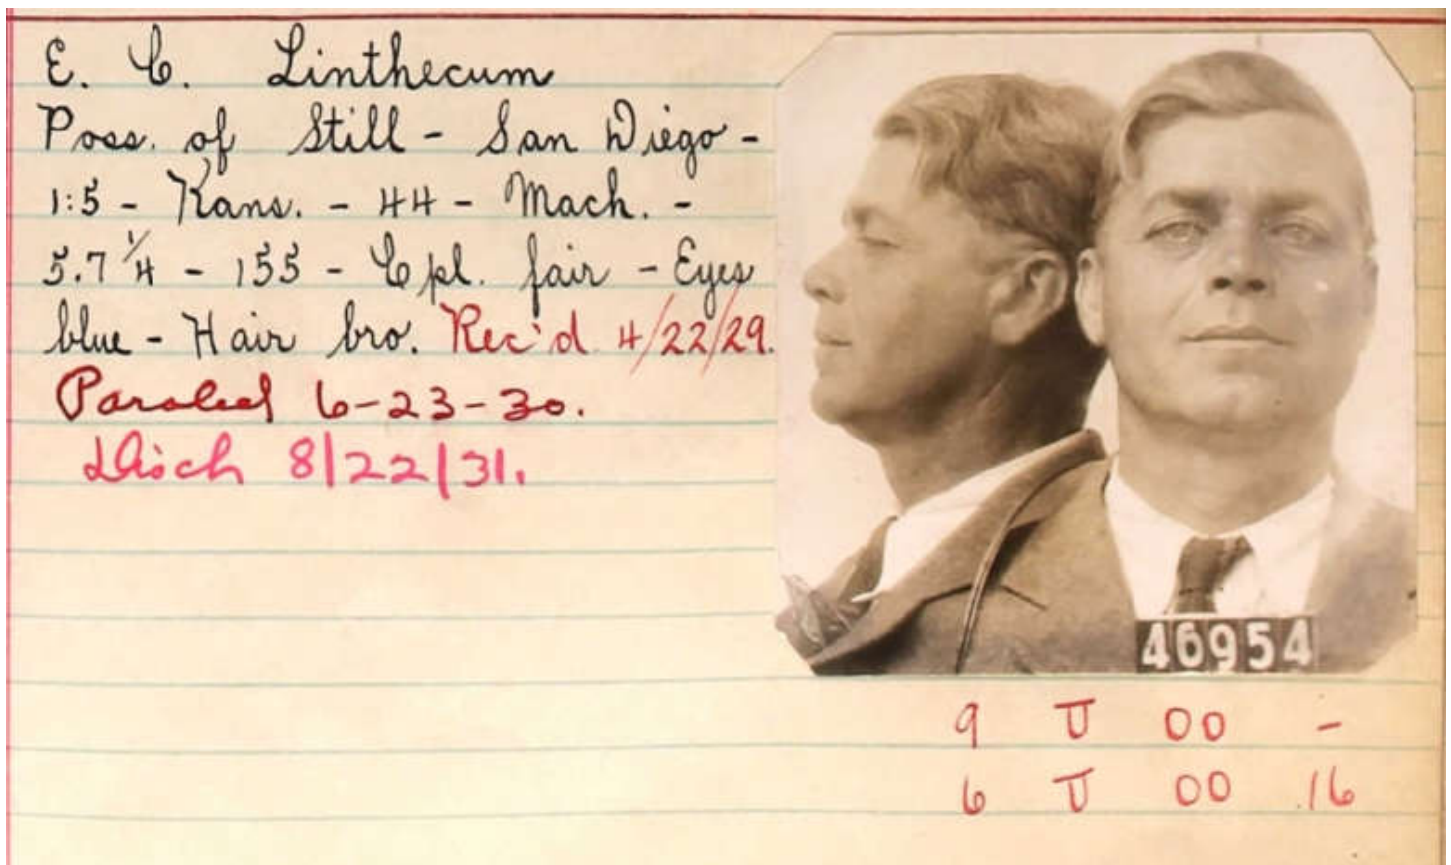 E. C. Linthecum
Poss. of Still - San Diego -
1:5 - Kans. - 44 - Mach. -
5.7 1/4 - 155 - Cpl. fair - Eyes
blue - Hair bro. Rec'd 4/22/29.
Paroled 6-23-30.
Disch 8/22/31.
46954
9 U 00 -
6 U 00 16